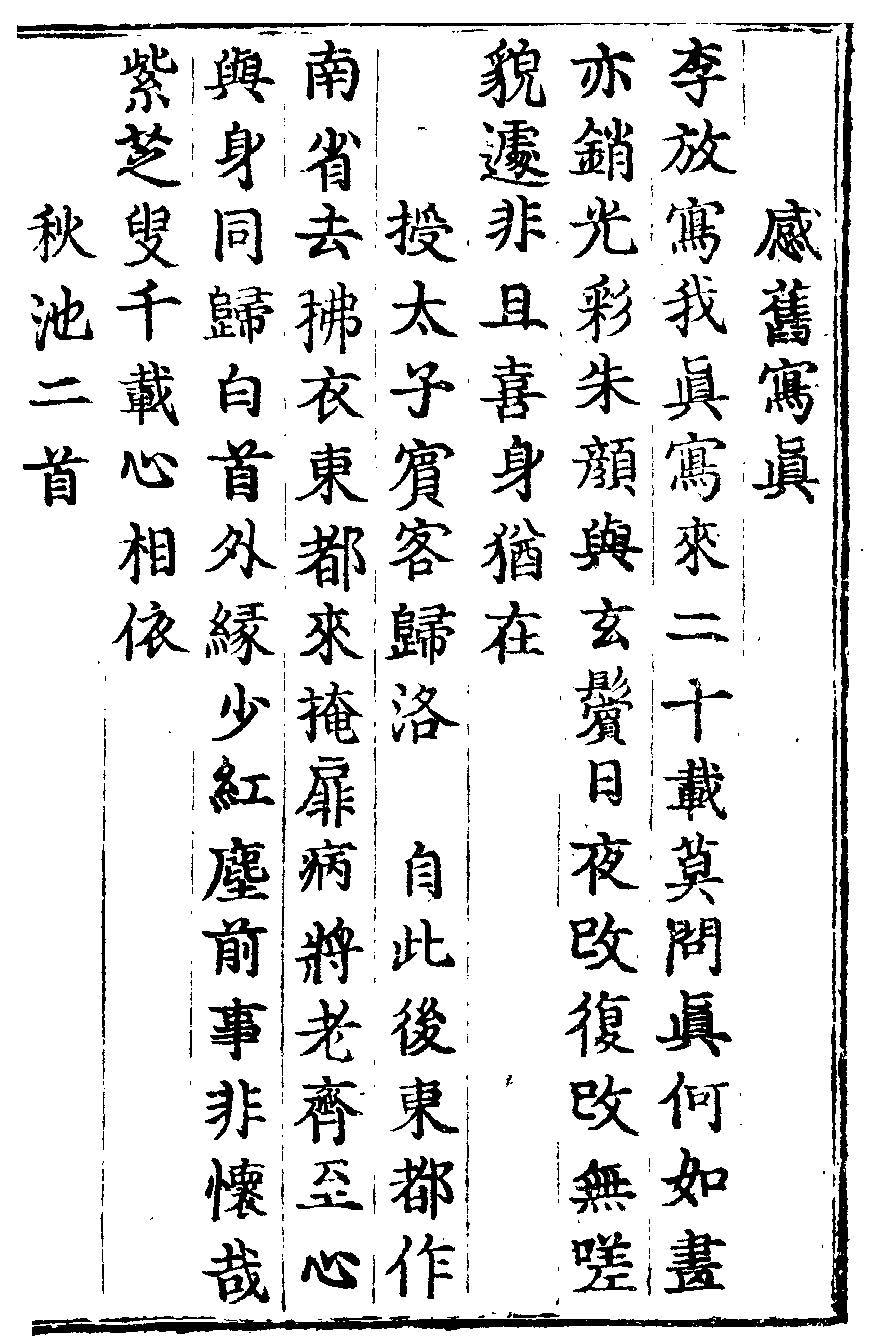 感舊寫眞
李放寫我眞寫來二十載莫問眞何如畫
亦銷光彩朱顔與玄鬢日夜改復改無嗟
貌遽非且喜身猶在
授太子賔客歸洛　自此後東都作
南省去拂衣東都來掩扉病將老齊至心
與身同歸白首外緣少紅塵前事非懷哉
紫芝叟千載心相依
秋池二首